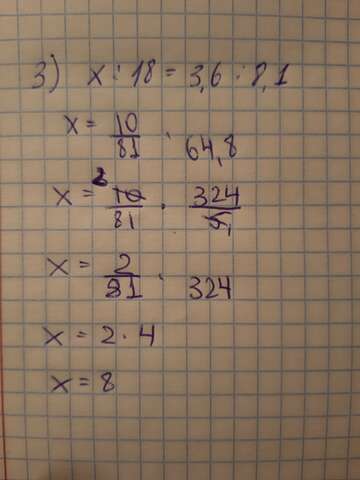 3) x : 18 = 3,6 : 8,1
x = 10/81 · 64,8
x = 2 10/81 · 324/5 1
x = 2/81 · 324
x = 2 · 4
x = 8